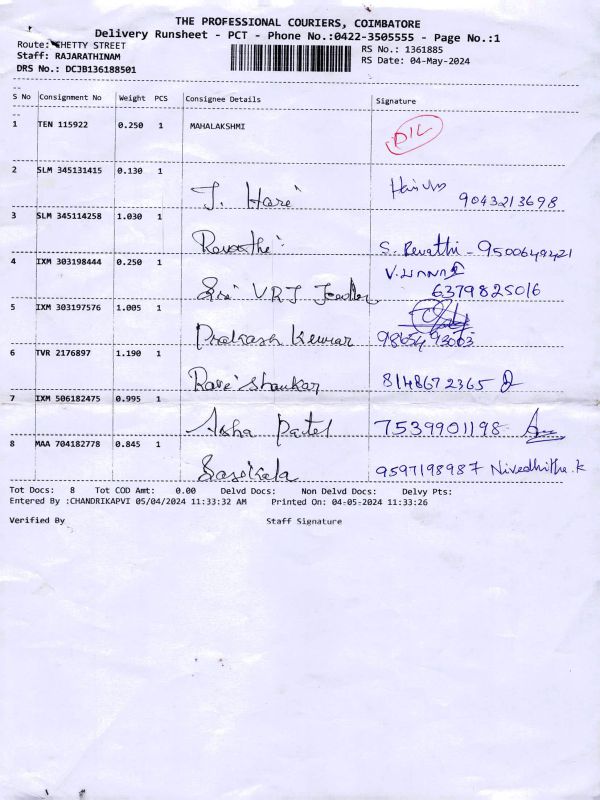 THE PROFESSIONAL COURIERS, COIMBATORE
Delivery Runsheet - PCT - Phone No.:0422-3505555 - Page No.:1
Route: CHETTY STREET
RS No.: 1361885
Staff: RAJARATHINAM
RS Date: 04-May-2024
DRS No.: DCJB136188501
S No Consignment No Weight PCS Consignee Details Signature
1 TEN 115922 0.250 1 MAHALAKSHMI
2 SLM 345131415 0.130 1 J. Hari 9043213698
3 SLM 345114258 1.030 1 Revathi S. Revathi - 9500649421
4 IXM 303198444 0.250 1 Sri VRJ 6379825016
5 IXM 303197576 1.005 1 Prakash Kumar
6 TVR 2176897 1.190 1 Ravi Shankar 8148672365
7 IXM 506182475 0.995 1 Asha Patel 7539901198
8 MAA 704182778 0.845 1 Sasikala 9597198987 Nivedhitha.k
Tot Docs: 8 Tot COD Amt: 0.00 Delvd Docs: Non Delvd Docs: Delvy Pts:
Entered By :CHANDRIKAPVI 05/04/2024 11:33:32 AM Printed On: 04-05-2024 11:33:26
Verified By Staff Signature